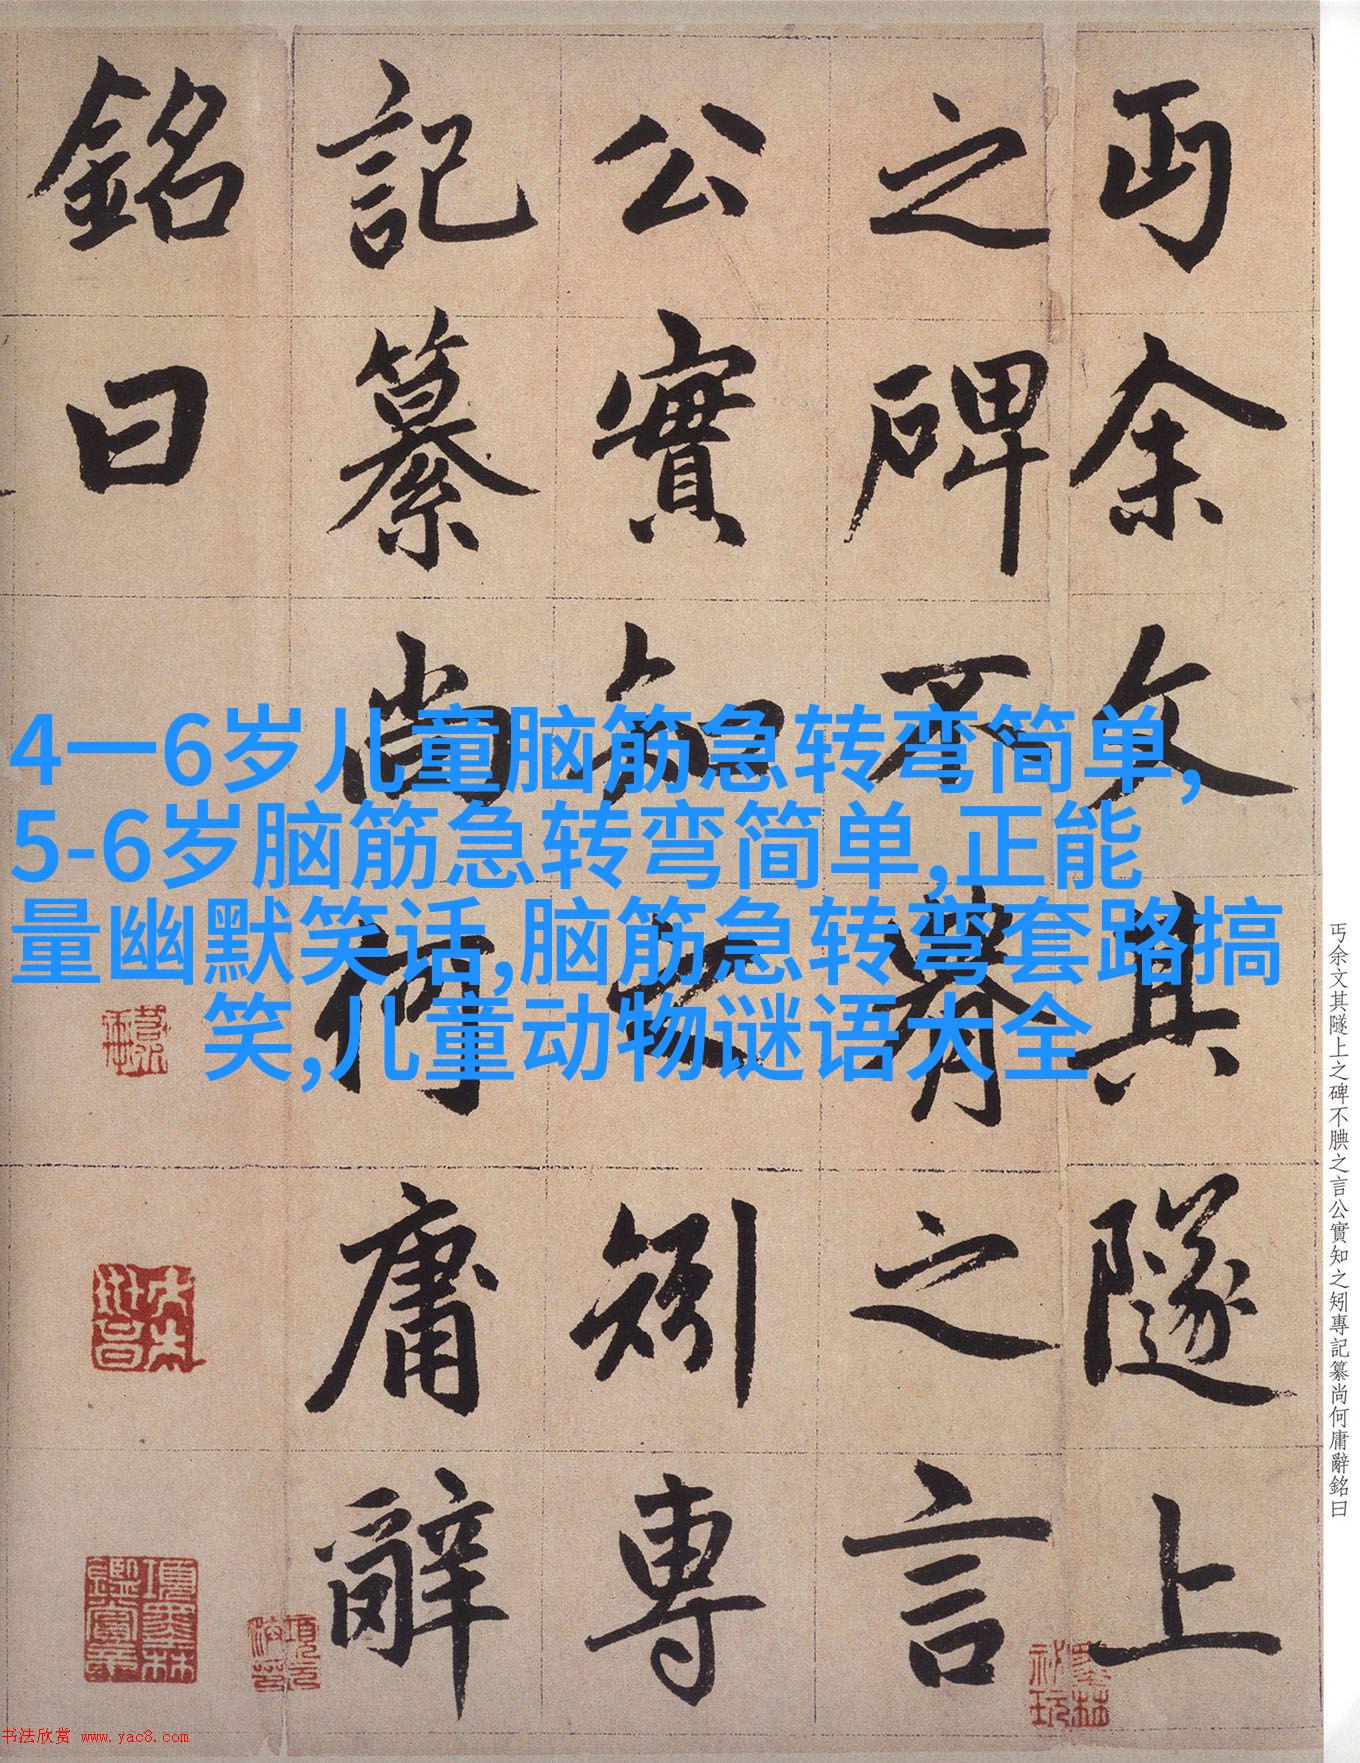 丐余文其隧上
之碑不腆之言
公實知之矧專
記纂尚何庸辭
銘曰
4一6岁儿童脑筋急转弯简单,
5-6岁脑筋急转弯简单,正能
量幽默笑话,脑筋急转弯套路搞
笑,儿童动物谜语大全
丐余文其隧上之碑不腆之言公實知之矧專記纂尚何庸辭銘曰
項墨林鑑賞章
书法欣赏 www.yac8.com